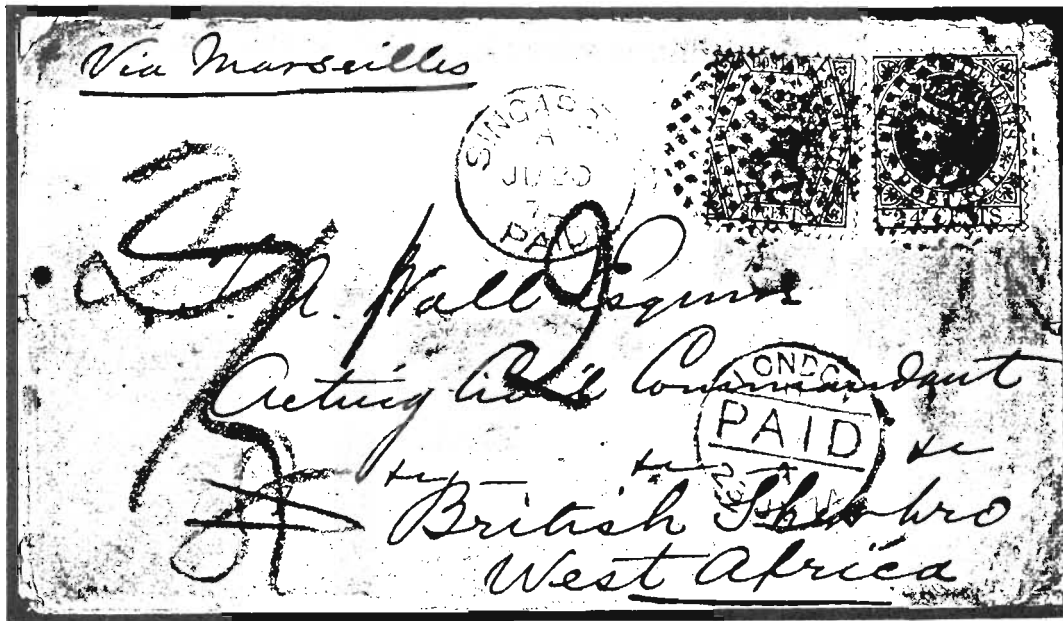 Via Marseilles
A
JU 20
PAID
24 CENTS
Wall Esquire
Acting Civil Commandant
LONDON
PAID
A
&c &c &c
British Sherbro
West Africa